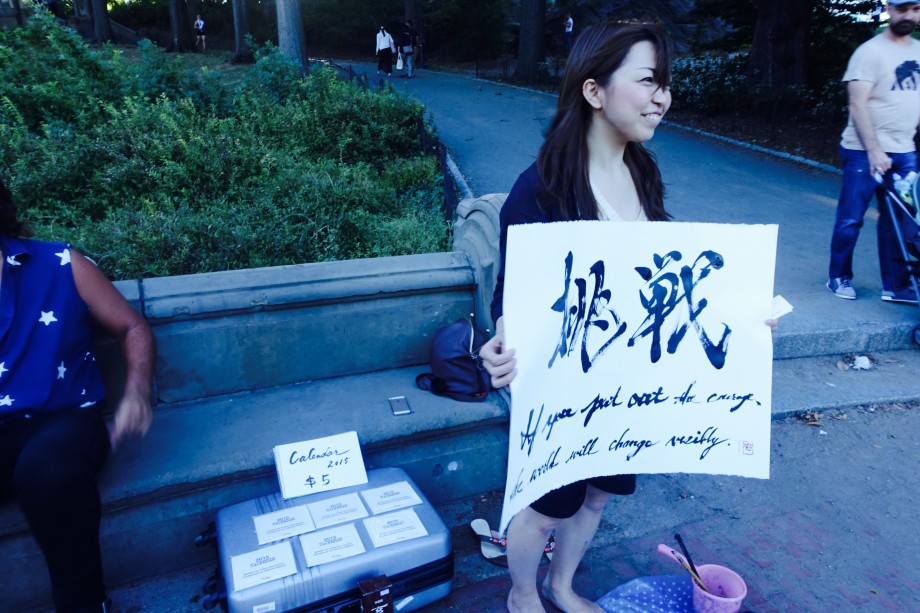 挑戦
If you put out the courage.
the world will change visibly.
Calendar
2015
$5